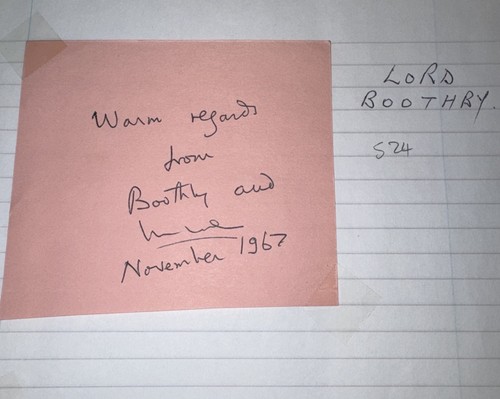 Warm regards
from
Boothby and
November 1967
LORD
BOOTHBY.
S24